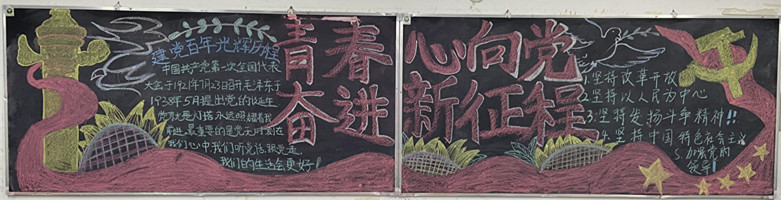 青春
奋进
建党百年光辉历程
中国共产党第一次全国代表
大会于1921年7月23日召开毛泽东于
1938年5月提出党的诞生
党的光是灯塔永远照耀着我
前进,最重要的是党无时刻在
我们心中,我们听党话跟党走
我们的生活会更好!
心向党
新征程
1.坚持改革开放
2.坚持以人民为中心
3.坚持发扬斗争精神!!
4.坚持中国特色社会主义
5.加强党的
领导!